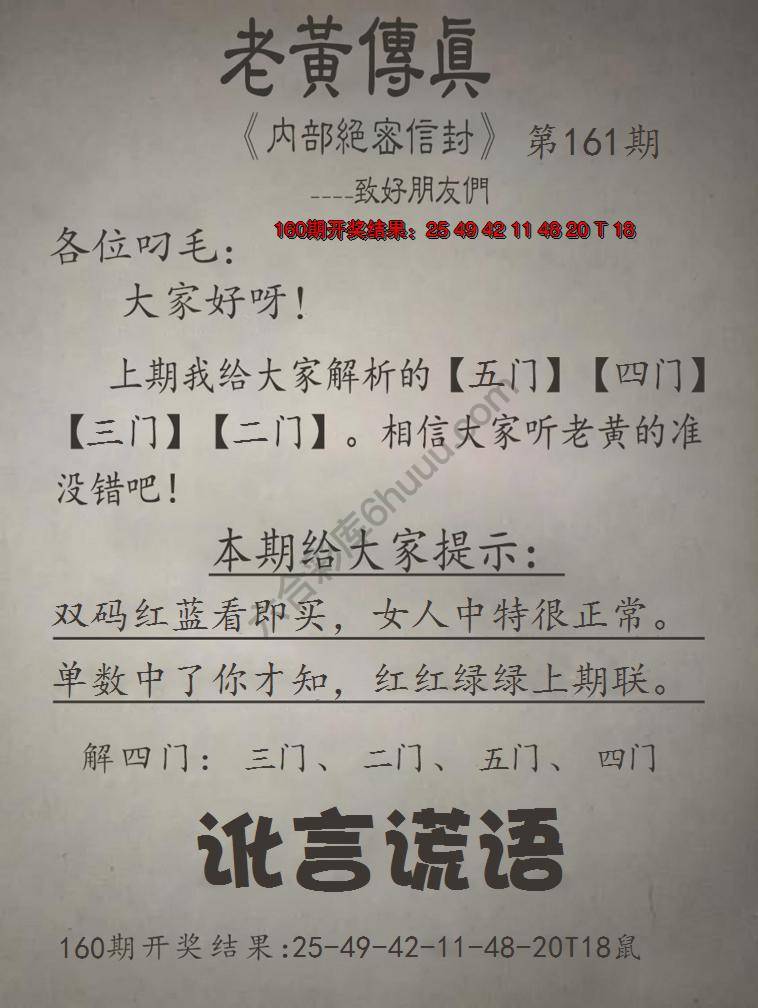 老黃傳真
《内部絕密信封》 第161期
----致好朋友們
160期开奖结果：25 49 42 11 48 20 T 18
各位叼毛：
大家好呀！
上期我给大家解析的【五门】【四门】
【三门】【二门】。相信大家听老黄的准
没错吧！
六合彩库6huuu.com
本期给大家提示：
双码红蓝看即买，女人中特很正常。
单数中了你才知，红红绿绿上期联。
解四门：三门、二门、五门、四门
讹言谎语
160期开奖结果:25-49-42-11-48-20T18鼠